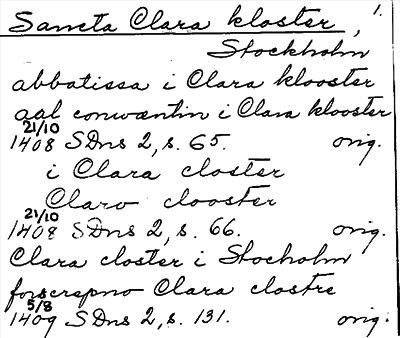 Sancta Clara kloster, 1.
Stockholm
abbatissa i Clara klooster
aal conwæntin i Clara klooster
21/10
1408 SDns 2, s. 65. orig.
i Clara closter
Claro clooster
21/10
1408 SDns 2, s. 66. orig.
Clara closter i Stocholm
forscrepno Clara clostre
5/8
1409 SDns 2, s. 131. orig.